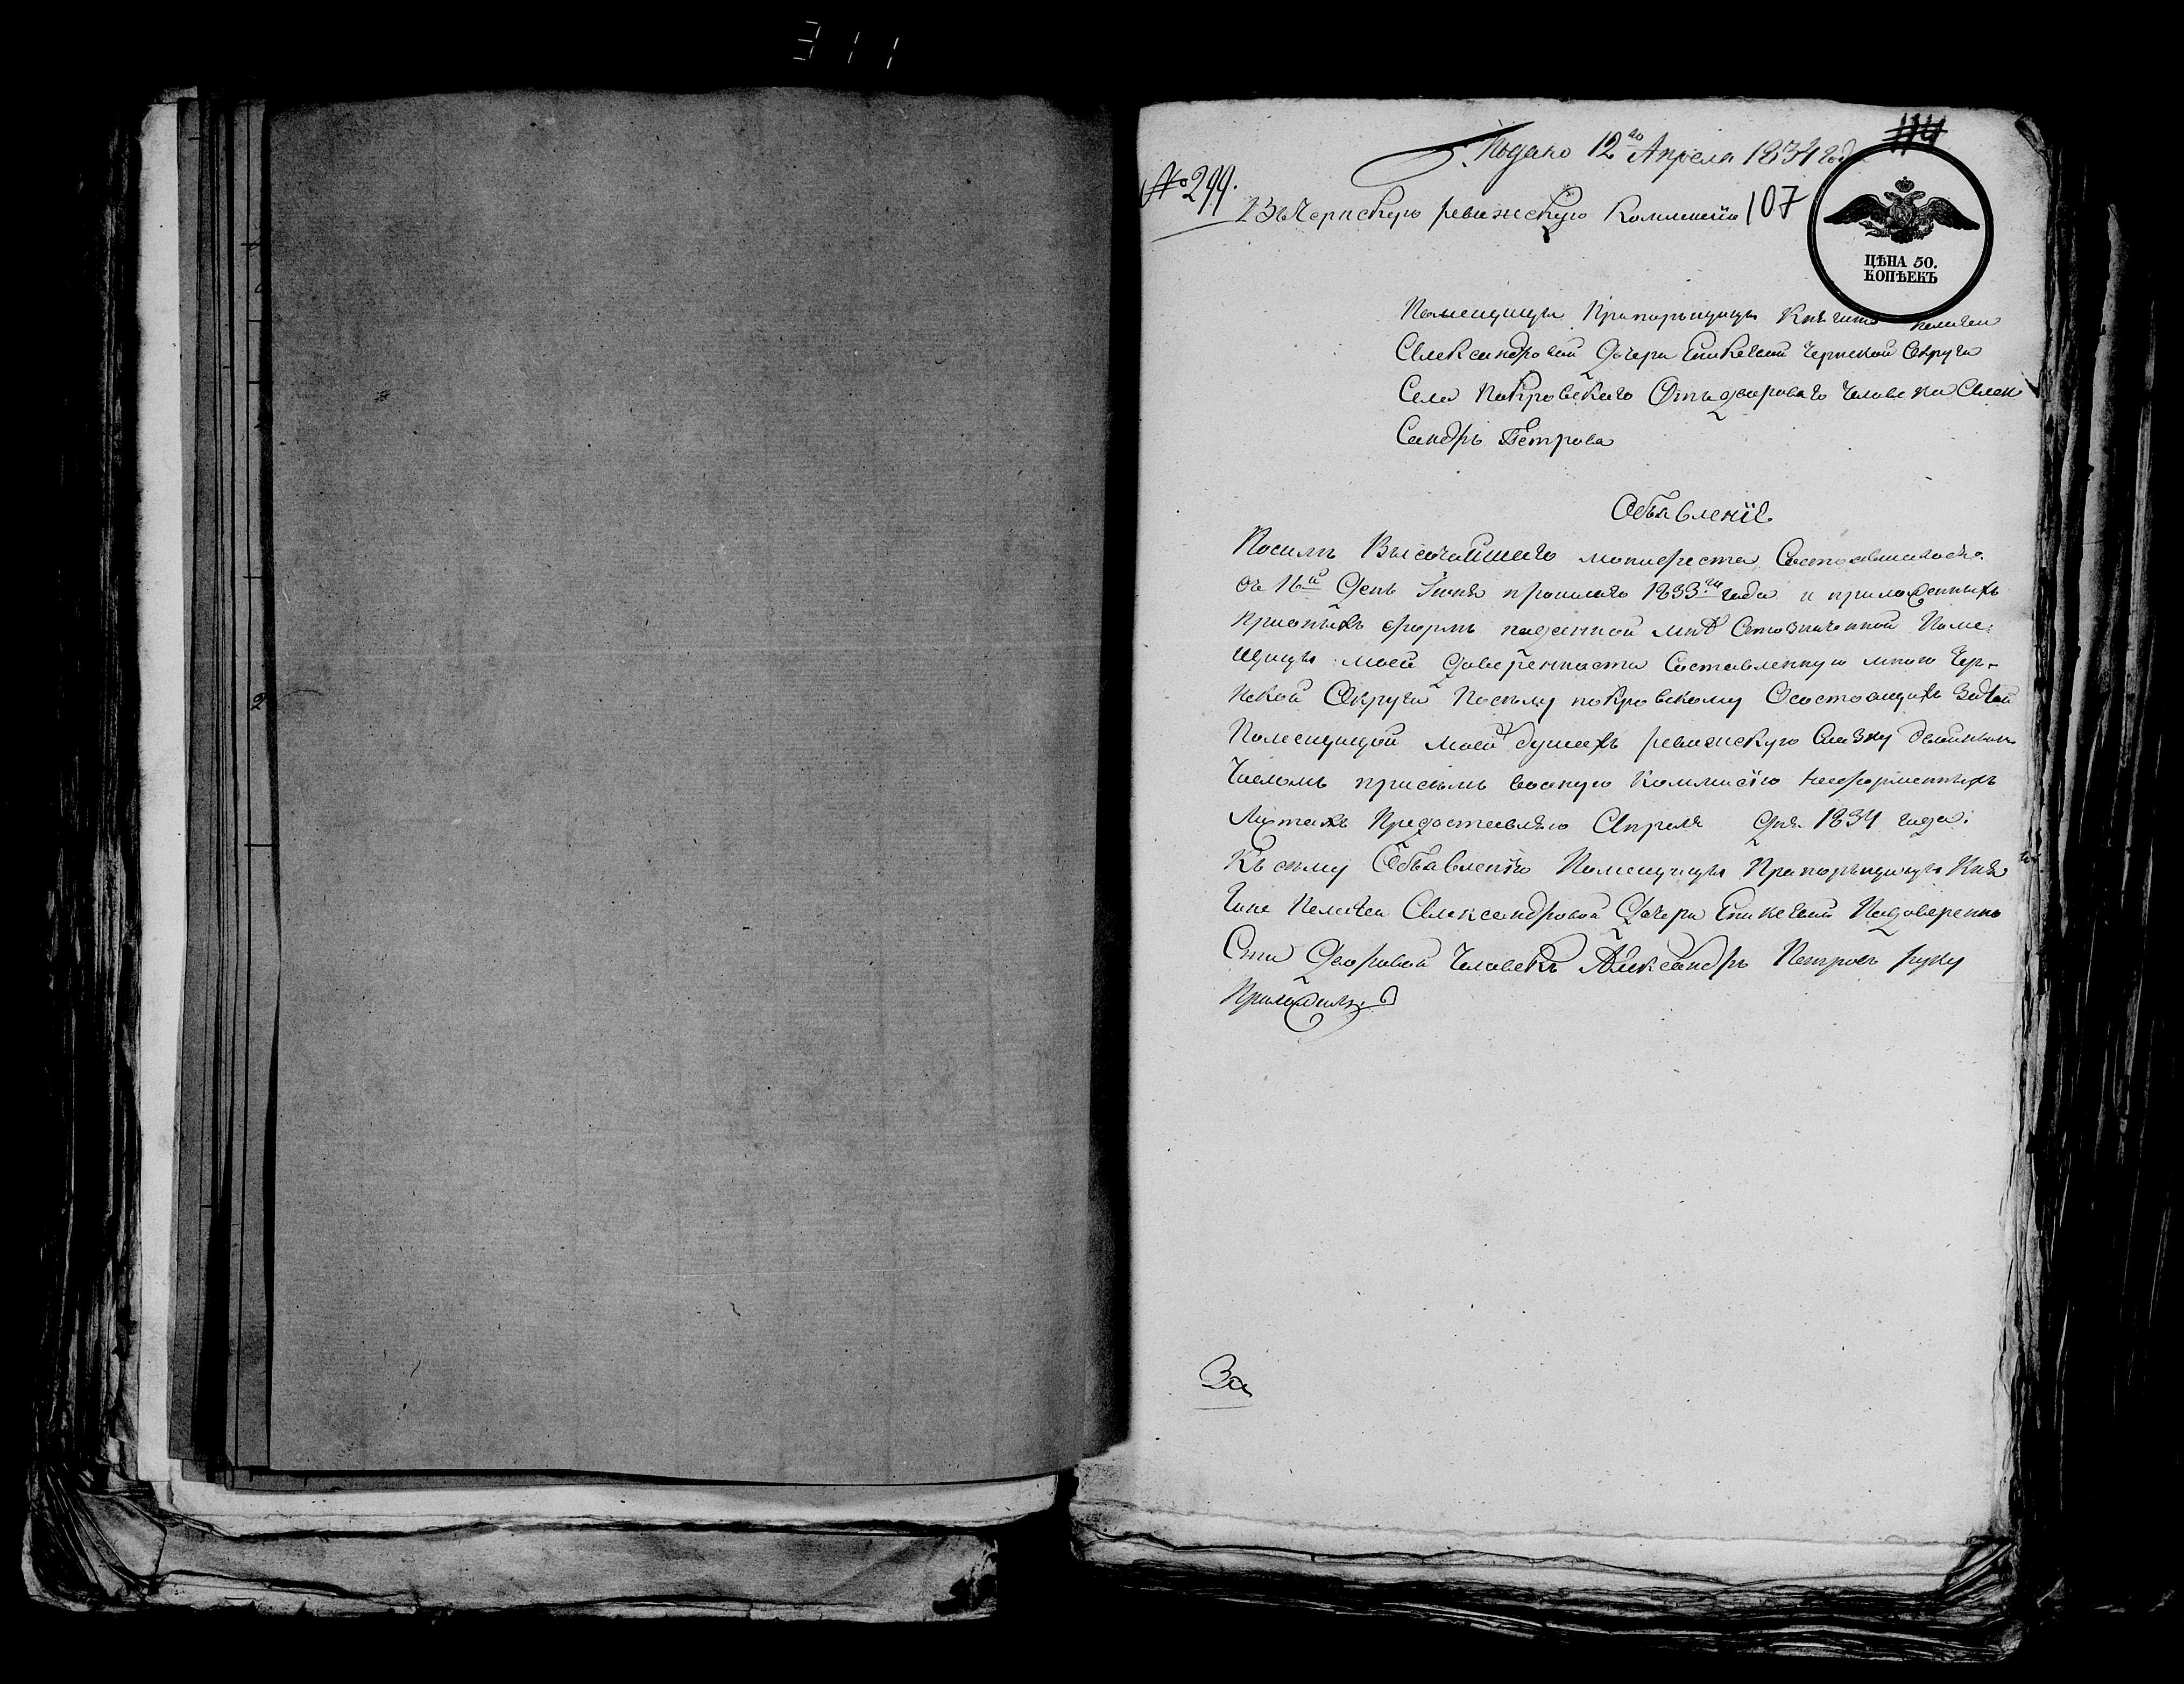 311
Подано 12го Апреля 1834 года
114
№ 299.
Въ Чернскую ревизскую Коммисiю
107
ЦѢНА 50.
КОПѢЕКЪ
Помещицы Прапорьщицы Княгини Пелагеи
Александровой Дочери Еникеевой Чернской Округи
Села Покровскаго Отъ дворового Человека Алек
Сандръ Петрова
Объявленiе
Посилъ Высочайшего манифеста Состоявшагося
въ 16й День Iюня прошлаго 1833го года и приложенныхъ
Приономъ формъ поданной мнѣ Отозначенной Поме-
щицы моей Доверенности Составленную мною Чер-
нской Округи Посѣлу покровскому Осостоящихъ Затой
Помещицой моей душахъ ревизскую Скаску двойнымъ
Числомъ присемъ вооную Коммисiю Наформенныхъ
Листахъ Предоставляю Апреля Дня 1834 года.
Къ сему Объявленiю Помещицы Прапорьщицы Кня
Гине Пелагеи Александровой Дочери Еникеевой Подоверенно
Сти Дворовой Человекъ Александръ Петровъ руку
Приложилъ.
За